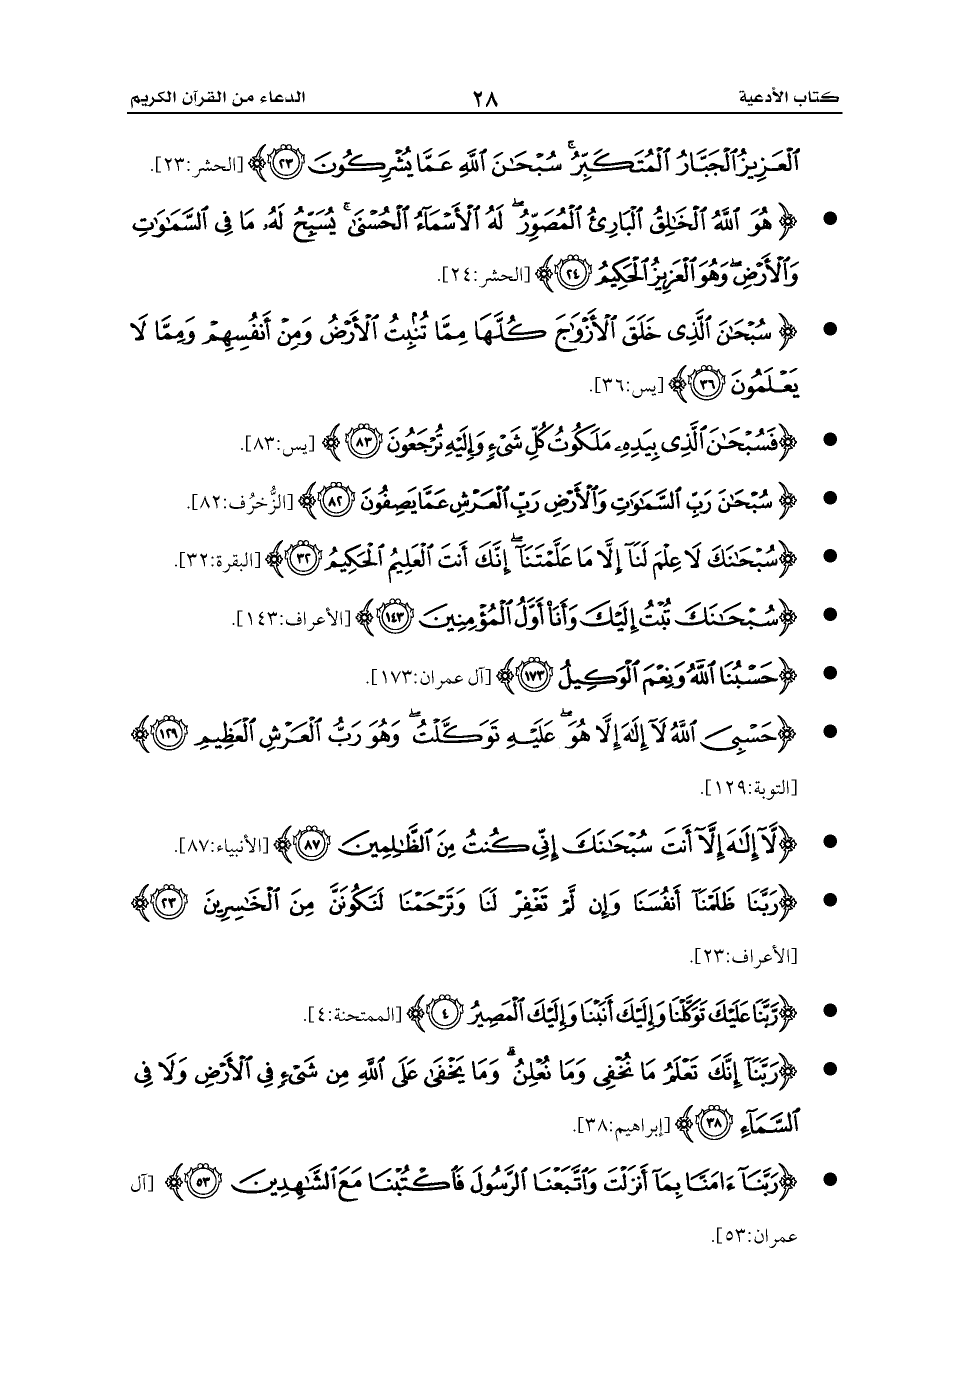 كتاب الأدعية ٢٨ الدعاء من القرآن الكريم
ٱلْعَزِيزُ ٱلْجَبَّارُ ٱلْمُتَكَبِّرُۚ سُبْحَٰنَ ٱللَّهِ عَمَّا يُشْرِكُونَ ٢٣﴾ [الحشر:٢٣].
• ﴿هُوَ ٱللَّهُ ٱلْخَٰلِقُ ٱلْبَارِئُ ٱلْمُصَوِّرُۖ لَهُ ٱلْأَسْمَآءُ ٱلْحُسْنَىٰۚ يُسَبِّحُ لَهُۥ مَا فِى ٱلسَّمَٰوَٰتِ
وَٱلْأَرْضِۖ وَهُوَ ٱلْعَزِيزُ ٱلْحَكِيمُ ٢٤﴾ [الحشر:٢٤].
• ﴿سُبْحَٰنَ ٱلَّذِى خَلَقَ ٱلْأَزْوَٰجَ كُلَّهَا مِمَّا تُنۢبِتُ ٱلْأَرْضُ وَمِنْ أَنفُسِهِمْ وَمِمَّا لَا
يَعْلَمُونَ ٣٦﴾ [يس:٣٦].
• ﴿فَسُبْحَٰنَ ٱلَّذِى بِيَدِهِۦ مَلَكُوتُ كُلِّ شَىْءٍ وَإِلَيْهِ تُرْجَعُونَ ٨٣﴾ [يس:٨٣].
• ﴿سُبْحَٰنَ رَبِّ ٱلسَّمَٰوَٰتِ وَٱلْأَرْضِ رَبِّ ٱلْعَرْشِ عَمَّا يَصِفُونَ ٨٢﴾ [الزُّخرُف:٨٢].
• ﴿سُبْحَٰنَكَ لَا عِلْمَ لَنَآ إِلَّا مَا عَلَّمْتَنَآۖ إِنَّكَ أَنتَ ٱلْعَلِيمُ ٱلْحَكِيمُ ٣٢﴾ [البقرة:٣٢].
• ﴿سُبْحَٰنَكَ تُبْتُ إِلَيْكَ وَأَنَا۠ أَوَّلُ ٱلْمُؤْمِنِينَ ١٤٣﴾ [الأعراف:١٤٣].
• ﴿حَسْبُنَا ٱللَّهُ وَنِعْمَ ٱلْوَكِيلُ ١٧٣﴾ [آل عمران:١٧٣].
• ﴿حَسْبِىَ ٱللَّهُ لَآ إِلَٰهَ إِلَّا هُوَۖ عَلَيْهِ تَوَكَّلْتُۖ وَهُوَ رَبُّ ٱلْعَرْشِ ٱلْعَظِيمِ ١٢٩﴾
[التوبة:١٢٩].
• ﴿لَّآ إِلَٰهَ إِلَّآ أَنتَ سُبْحَٰنَكَ إِنِّى كُنتُ مِنَ ٱلظَّٰلِمِينَ ٨٧﴾ [الأنبياء:٨٧].
• ﴿رَبَّنَا ظَلَمْنَآ أَنفُسَنَا وَإِن لَّمْ تَغْفِرْ لَنَا وَتَرْحَمْنَا لَنَكُونَنَّ مِنَ ٱلْخَٰسِرِينَ ٢٣﴾
[الأعراف:٢٣].
• ﴿رَّبَّنَا عَلَيْكَ تَوَكَّلْنَا وَإِلَيْكَ أَنَبْنَا وَإِلَيْكَ ٱلْمَصِيرُ ٤﴾ [الممتحنة:٤].
• ﴿رَبَّنَآ إِنَّكَ تَعْلَمُ مَا نُخْفِى وَمَا نُعْلِنُۗ وَمَا يَخْفَىٰ عَلَى ٱللَّهِ مِن شَىْءٍ فِى ٱلْأَرْضِ وَلَا فِى
ٱلسَّمَآءِ ٣٨﴾ [إبراهيم:٣٨].
• ﴿رَبَّنَآ ءَامَنَّا بِمَآ أَنزَلْتَ وَٱتَّبَعْنَا ٱلرَّسُولَ فَٱكْتُبْنَا مَعَ ٱلشَّٰهِدِينَ ٥٣﴾ [آل
عمران:٥٣].